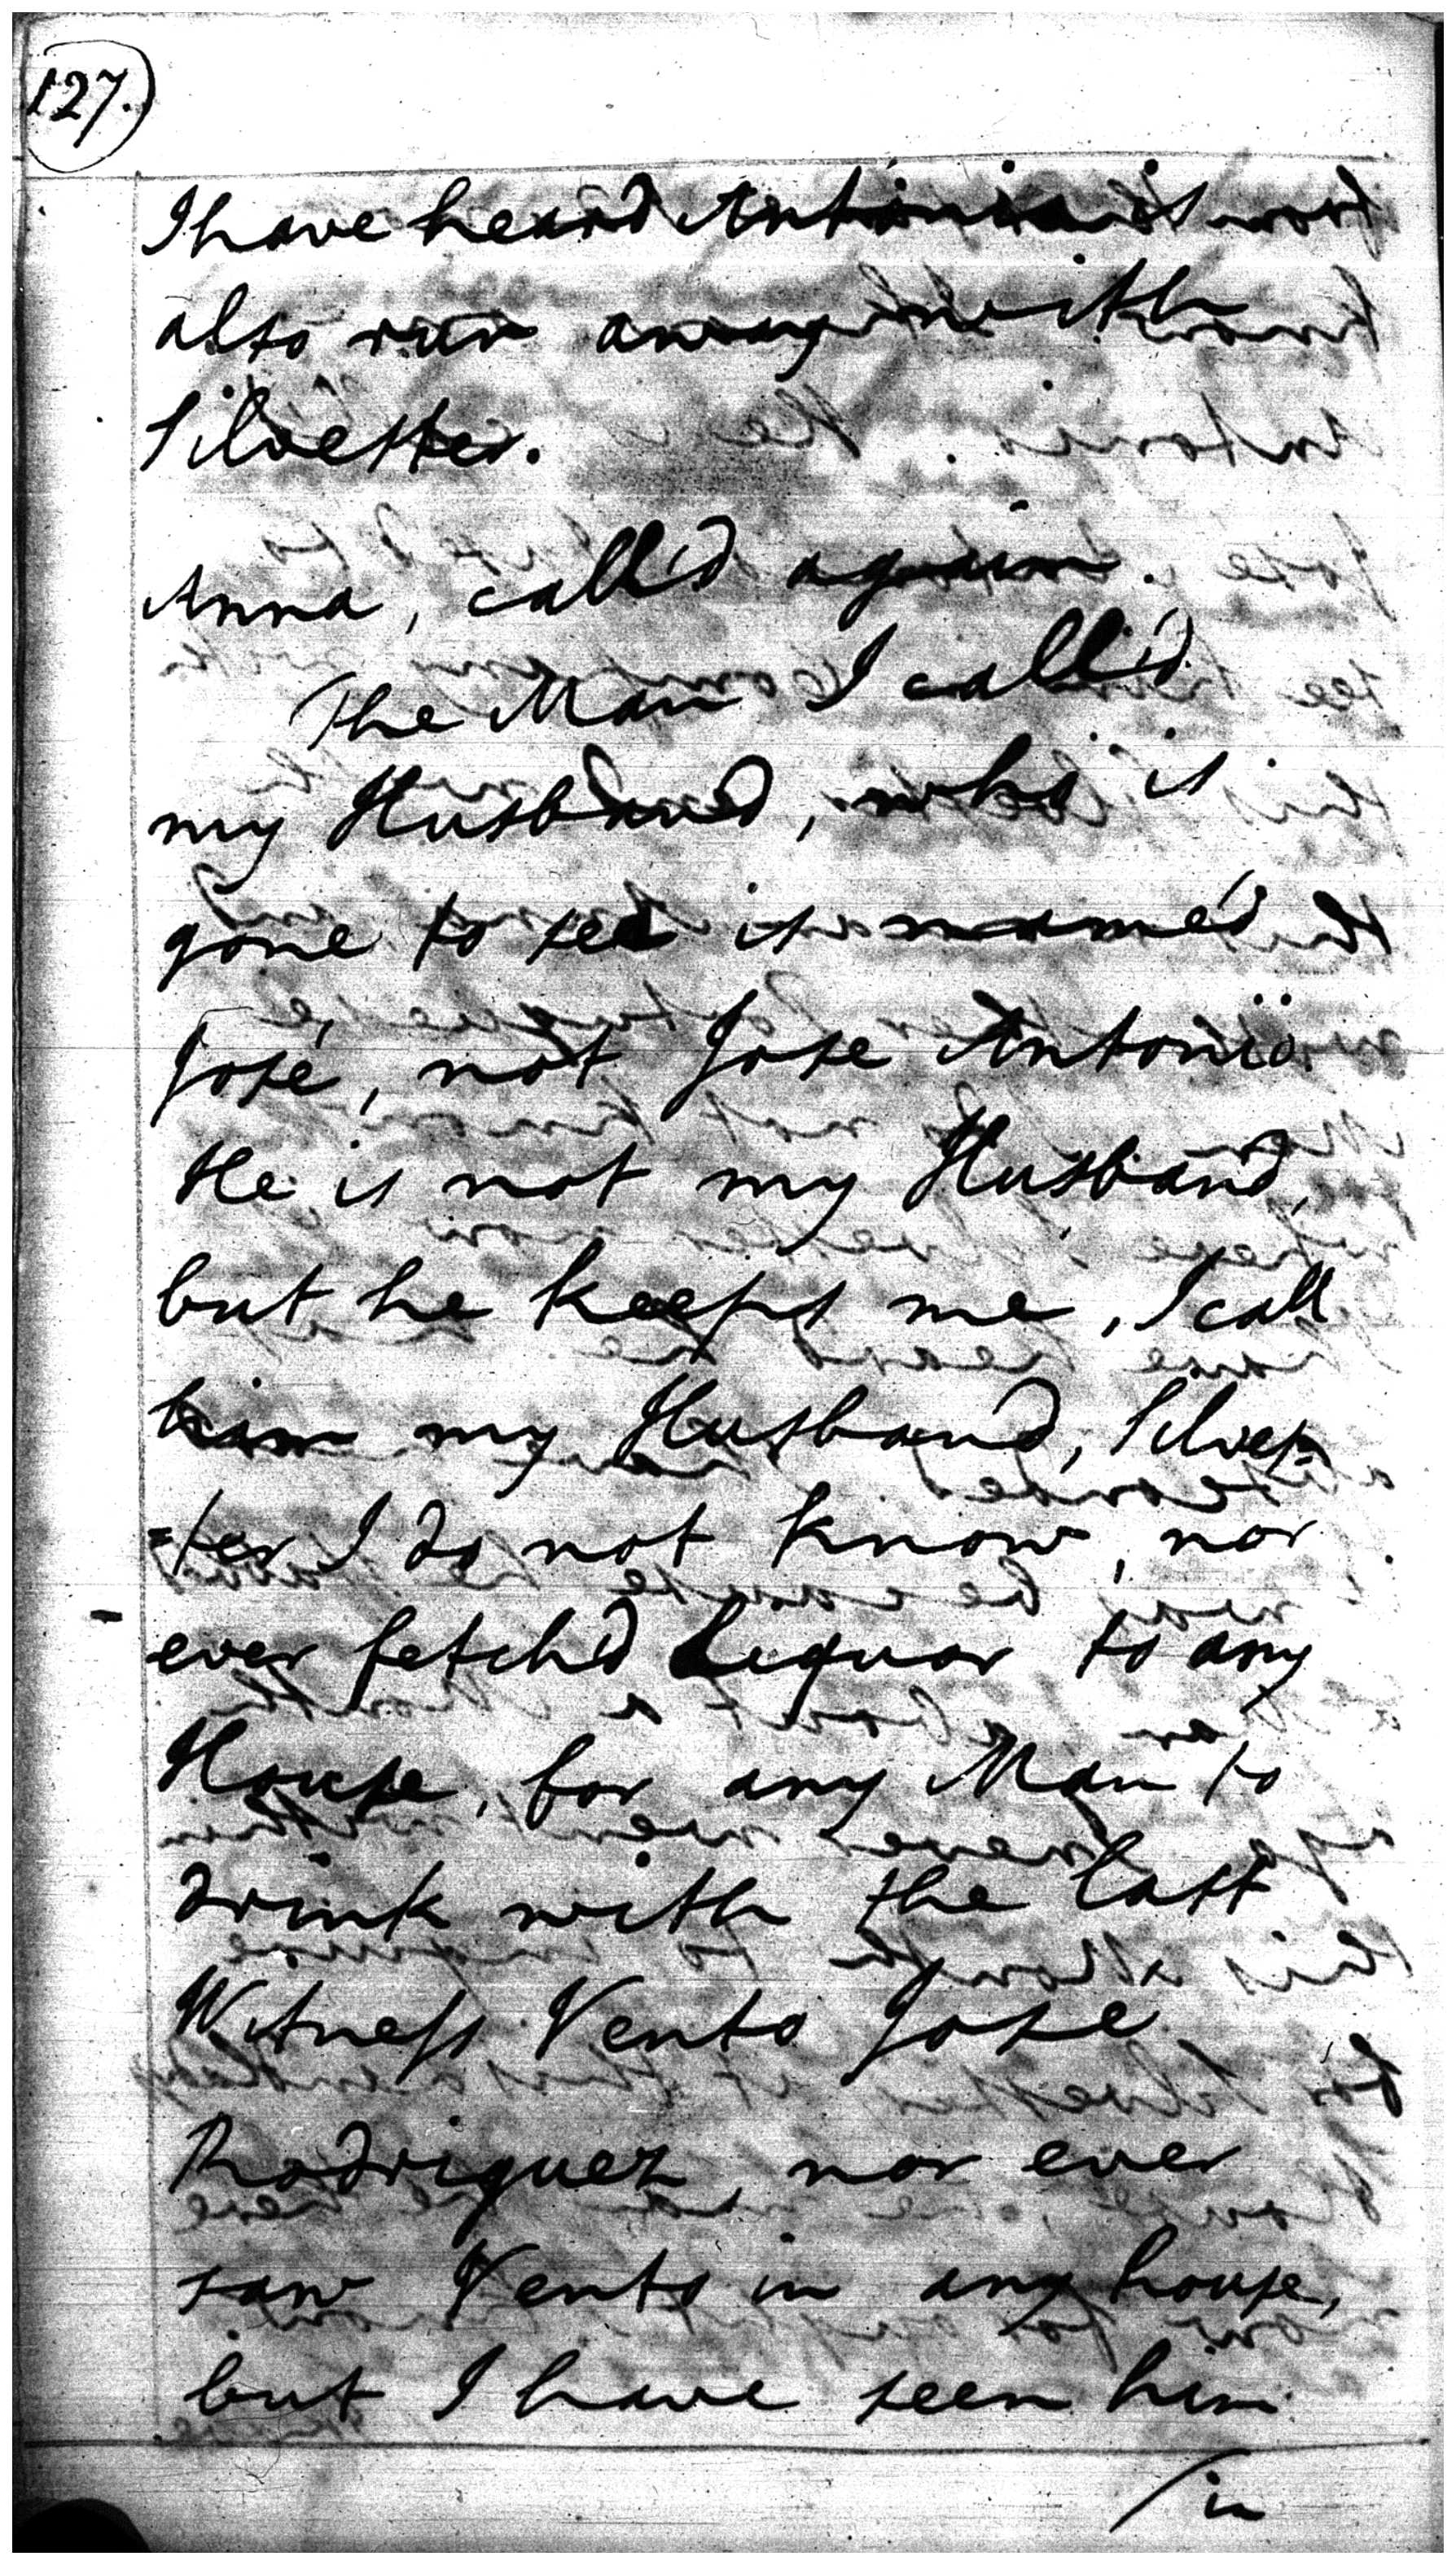 127.
I have heard Antonio is
also run away with
Silvester.
Anna, call'd again.
The Man I call'd
my Husband, who is
gone to sea is named
José, not Jose Antonio.
He is not my Husband,
but he keeps me, I call
him my Husband, Silves
=ter I do not know, nor
ever fetch'd Liquor to any
House, for any Man to
drink with the last
Witness Vento Jose
Rodriguez, nor ever
saw Vento in any house,
but I have seen him
/in